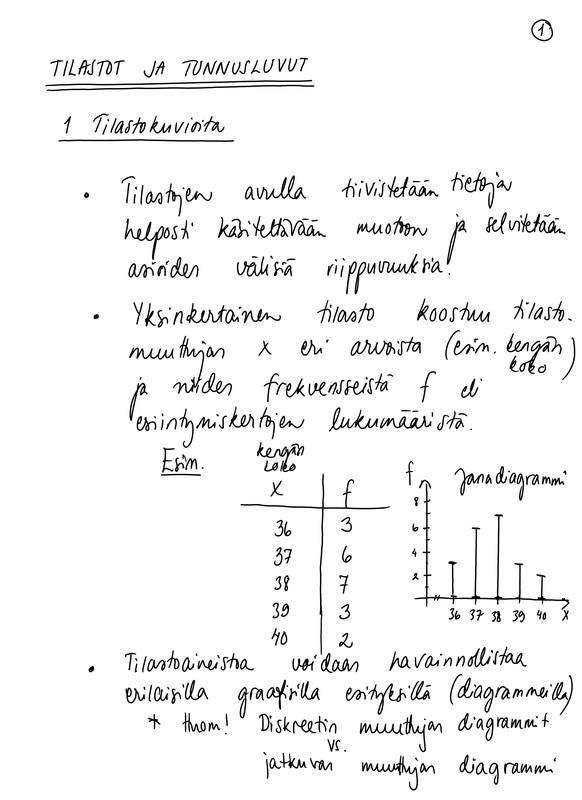 1
TILASTOT JA TUNNUSLUVUT
1 Tilastokuvioita
• Tilastojen avulla tiivistetään tietoja
helposti käsiteltävään muotoon ja selvitetään
asioiden välisiä riippuvuuksia!
• Yksinkertainen tilasto koostuu tilasto-
muuttujan x eri arvoista (esim. kengän
koko)
ja niiden frekvensseistä f eli
esiintymiskertojen lukumääristä.
Esim.
kengän
koko
x f
36 3
37 6
38 7
39 3
40 2
f Janadiagrammi
8
6
4
2
36 37 38 39 40 x
• Tilastoaineistoa voidaan havainnollistaa
erilaisilla graafisilla esityksillä (diagrammeilla)
* Huom! Diskreetin muuttujan diagrammit
vs.
jatkuvan muuttujan diagrammi